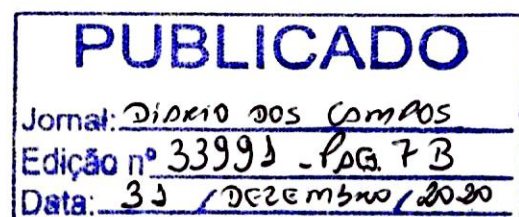 PUBLICADO
Jornal: DiÁRIO DOS CAMPOS
Edição nº 33991 - PÁG. 7 B
Data: 31 / DEZEMBRO / 2020